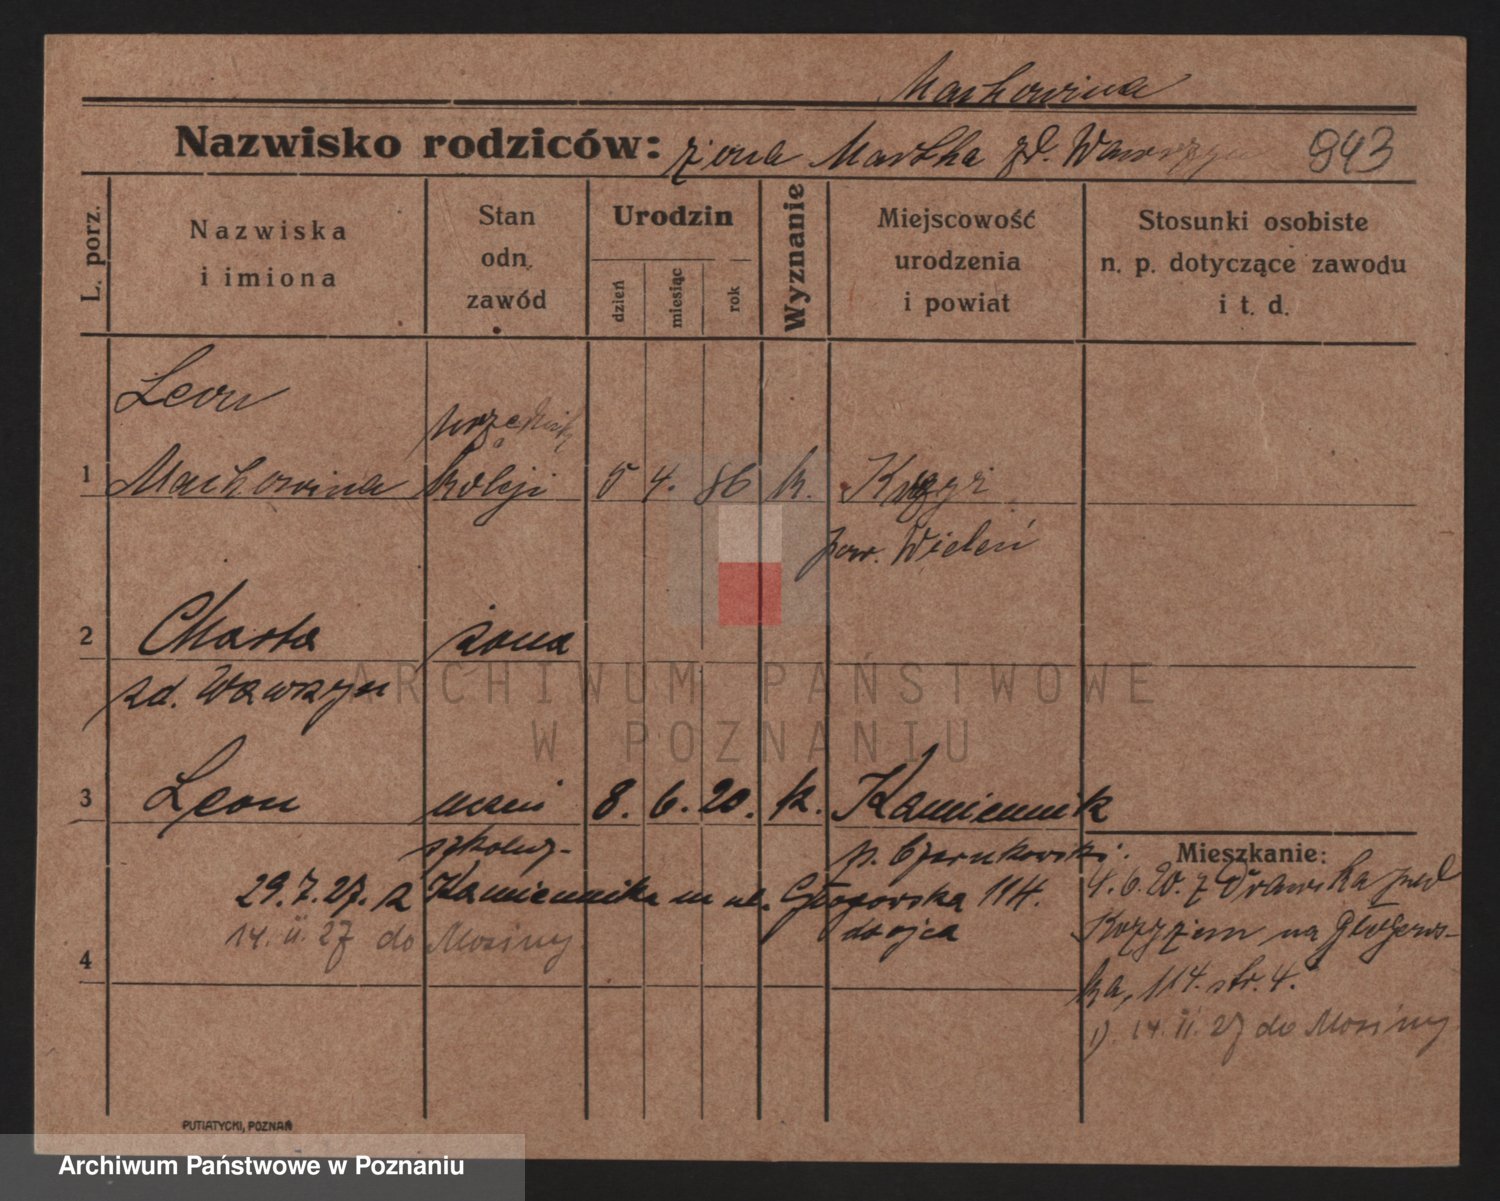 Machowina
Nazwisko rodziców: żona Martha zd. Wawrzyn 943
L. porz.
Nazwiska
i imiona
Stan
odn.
zawód
Urodzin
dzień
miesiąc
rok
Wyznanie
Miejscowość
urodzenia
i powiat
Stosunki osobiste
n. p. dotyczące zawodu
i t. d.
Leon
urzędnik
1 Machowina koleji 5 4. 86 k.
pow. Wieleń
2 Marta żona
zd. Wawrzyn
3 Leon uczeń 8. 6. 20. k. Kamiennik
szkolny. p. Czarnkowski.
Mieszkanie:
29.7.27. z Kamiennika m ul. Głogowska 114.
do ojca
14. II. 27 do Mosiny.
4
4. 6. 20. z Drawska pod
Krzyżem na Głogows-
ka, 114. str. 4.
1). 14. II. 27 do Mosiny.
ARCHIWUM PAŃSTWOWE
W POZNANIU
PUTIATYCKI, POZNAŃ
Archiwum Państwowe w Poznaniu